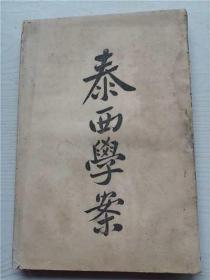 泰西學案